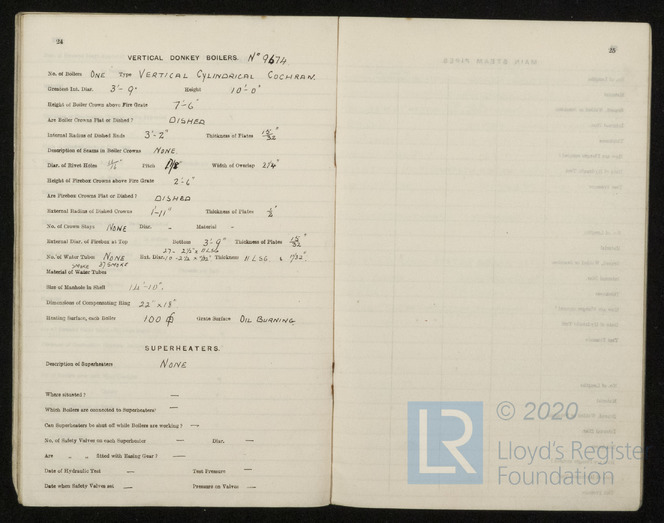 24
VERTICAL DONKEY BOILERS. No 9674.
No. of Boilers ONE Type VERTICAL CYLINDRICAL COCHRAN.
Greatest Int. Diar. 3'-9" Height 10'-0"
Height of Boiler Crown above Fire Grate 7'-6"
Are Boiler Crowns Flat or Dished? DISHED
Internal Radius of Dished Ends 3'-2" Thickness of Plates 15/32"
Description of Seams in Boiler Crowns NONE.
Diar. of Rivet Holes Pitch Width of Overlap 2 1/4"
Height of Firebox Crowns above Fire Grate 2'-6"
Are Firebox Crowns Flat or Dished? DISHED
External Radius of Dished Crowns 1'-11" Thickness of Plates 1/2"
No. of Crown Stays NONE Diar. - Material -
External Diar. of Firebox at Top Bottom 3'-9" Thickness of Plates 15/32"
No. of Water Tubes NONE Ext. Diar. Thickness
SMOKE 37 SMOKE
Material of Water Tubes
Size of Manhole in Shell
Dimensions of Compensating Ring 22" x 18"
Heating Surface, each Boiler 100 Grate Surface OIL BURNING
SUPERHEATERS.
Description of Superheaters NONE
Where situated? —
Which Boilers are connected to Superheaters? —
Can Superheaters be shut off while Boilers are working? —
No. of Safety Valves on each Superheater — Diar. —
Are " " fitted with Easing Gear? —
Date of Hydraulic Test — Test Pressure —
Date when Safety Valves set — Pressure on Valves —
25
LR
© 2020
Lloyd's Register
Foundation